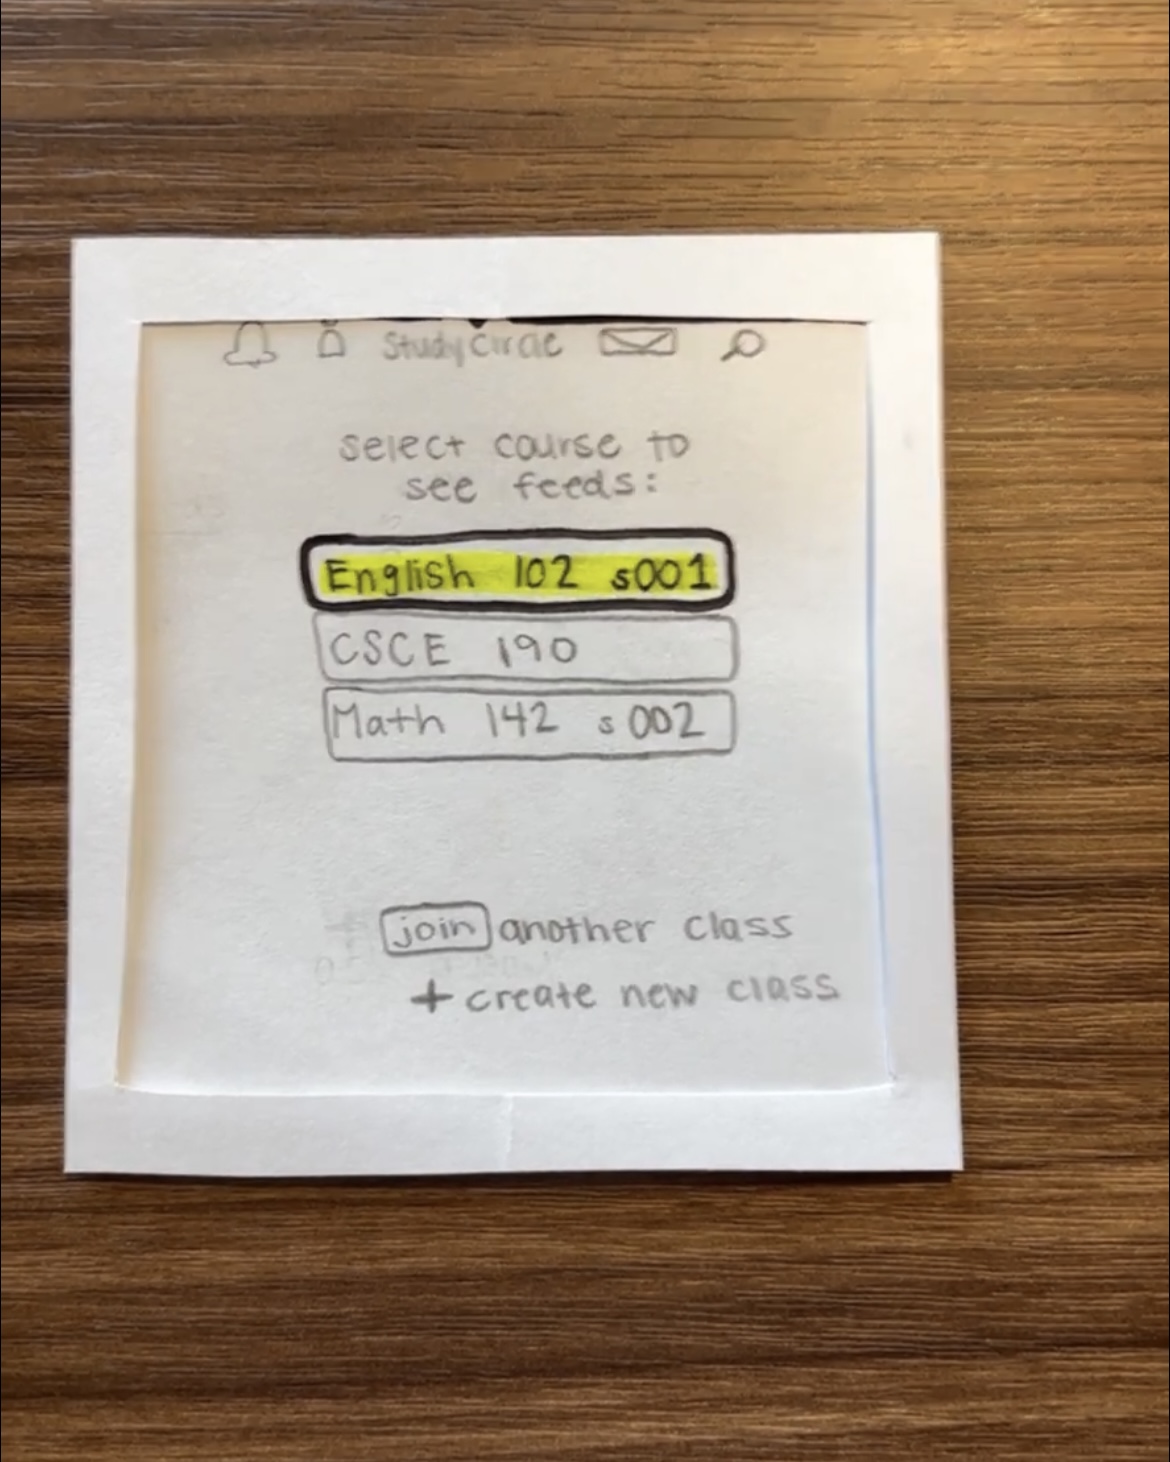 StudyCircle
select course to
see feeds:
English 102 s001
CSCE 190
Math 142 s002
join another class
+ create new class